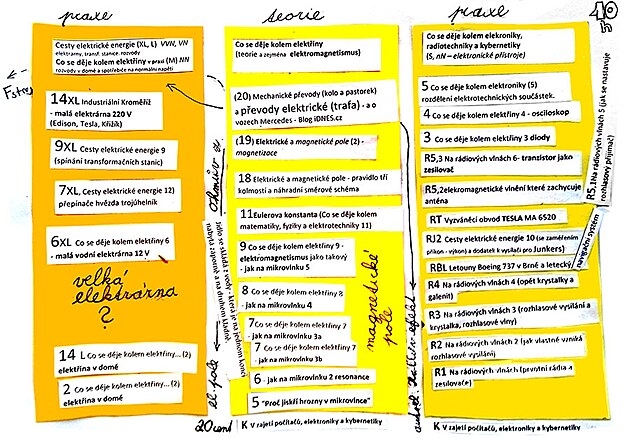 praxe
teorie
praxe
40
5
Cesty elektrické energie (XL, L) VVN, VN
elektrárny, transf. stanice, rozvody
Co se děje kolem elektřiny v praxi (M) NN
rozvody v domě a spotřebiče na normální napětí
14XL Industriální Kroměříž
- malá elektrárna 220 V
(Edison, Tesla, Křižík)
9XL Cesty elektrické energie 9
(spínání transformačních stanic)
7XL, Cesty elektrické energie 12)
přepínače hvězda trojúhelník
6XL Co se děje kolem elektřiny 6
- malá vodní elektrárna 12 V
velká
elektrárna
?
14 L Co se děje kolem elektřiny... (2)
elektřina v domě
2 Co se děje kolem elektřiny... (2)
elektřina v domě
Jádro se skládá z vody - která je na jednom konci
nabytá záporně a na druhém kladně.
el. pole
20 cent
Co se děje kolem elektřiny
(teorie a zejména elektromagnetismus)
(20) Mechanické převody (kolo a pastorek)
a převody elektrické (trafa) - a o
vozech Mercedes - Blog iDNES.cz
(19) Elektrické a magnetické pole (2) -
magnetizace
18 Elektrické a magnetické pole - pravidlo tří
kolmostí a náhradní směrové schéma
11 Eulerova konstanta (Co se děje kolem
matematiky, fyziky a elektrotechniky 11)
9 Co se děje kolem elektřiny 9 -
elektromagnetismus jako takový
- jak na mikrovlnku 5
8 Co se děje kolem elektřiny 8
- jak na mikrovlnku 4
7 Co se děje kolem elektřiny 7
- jak na mikrovlnku 3a
7 Co se děje kolem elektřiny 7
- jak na mikrovlnku 3b
6 - jak na mikrovlnku 2 resonance
5 "Proč jiskří hrozny v mikrovlnce"
K V rajetí počítačů, elektroniky a kybernetiky
magnetické
pole
Co se děje kolem elekroniky,
radiotechniky a kybernetiky
(S, nN – elektronické přístroje)
5 Co se děje kolem elektroniky (5)
rozdělení elektrotechnických součástek.
4 Co se děje kolem elektřiny 4 - osciloskop
3 Co se děje kolem elektřiny 3 diody
R5,3 Na rádiových vlnách 6- tranzistor jako
zesilovač
R5,2elekromagnetické vlnění které zachycuje
anténa
RT Vyzváněcí obvod TESLA MA 6520
RJ2 Cesty elektrické energie 10 (se zaměřením
příkon - výkon) a dodatek k vysílači pro Junkers)
RBL Letouny Boeing 737 v Brně a letecký
navigační systém
R4 Na rádiových vlnách 4 (opět krystalky a
galenit)
R3 Na rádiových vlnách 3 (rozhlasové vysílání a
krystalka, rozhlasové vlny)
R2 Na rádiových vlnách 2 (jak vlastně vzniká
rozhlasové vysílání)
R1 Na rádiových vlnách (první rádia a
zesilovače)
K V rajetí počítačů, elektroniky a kybernetiky
R5,1Na rádiových vlnách 5 (jak se nastavuje
rozhlasový přijímač)